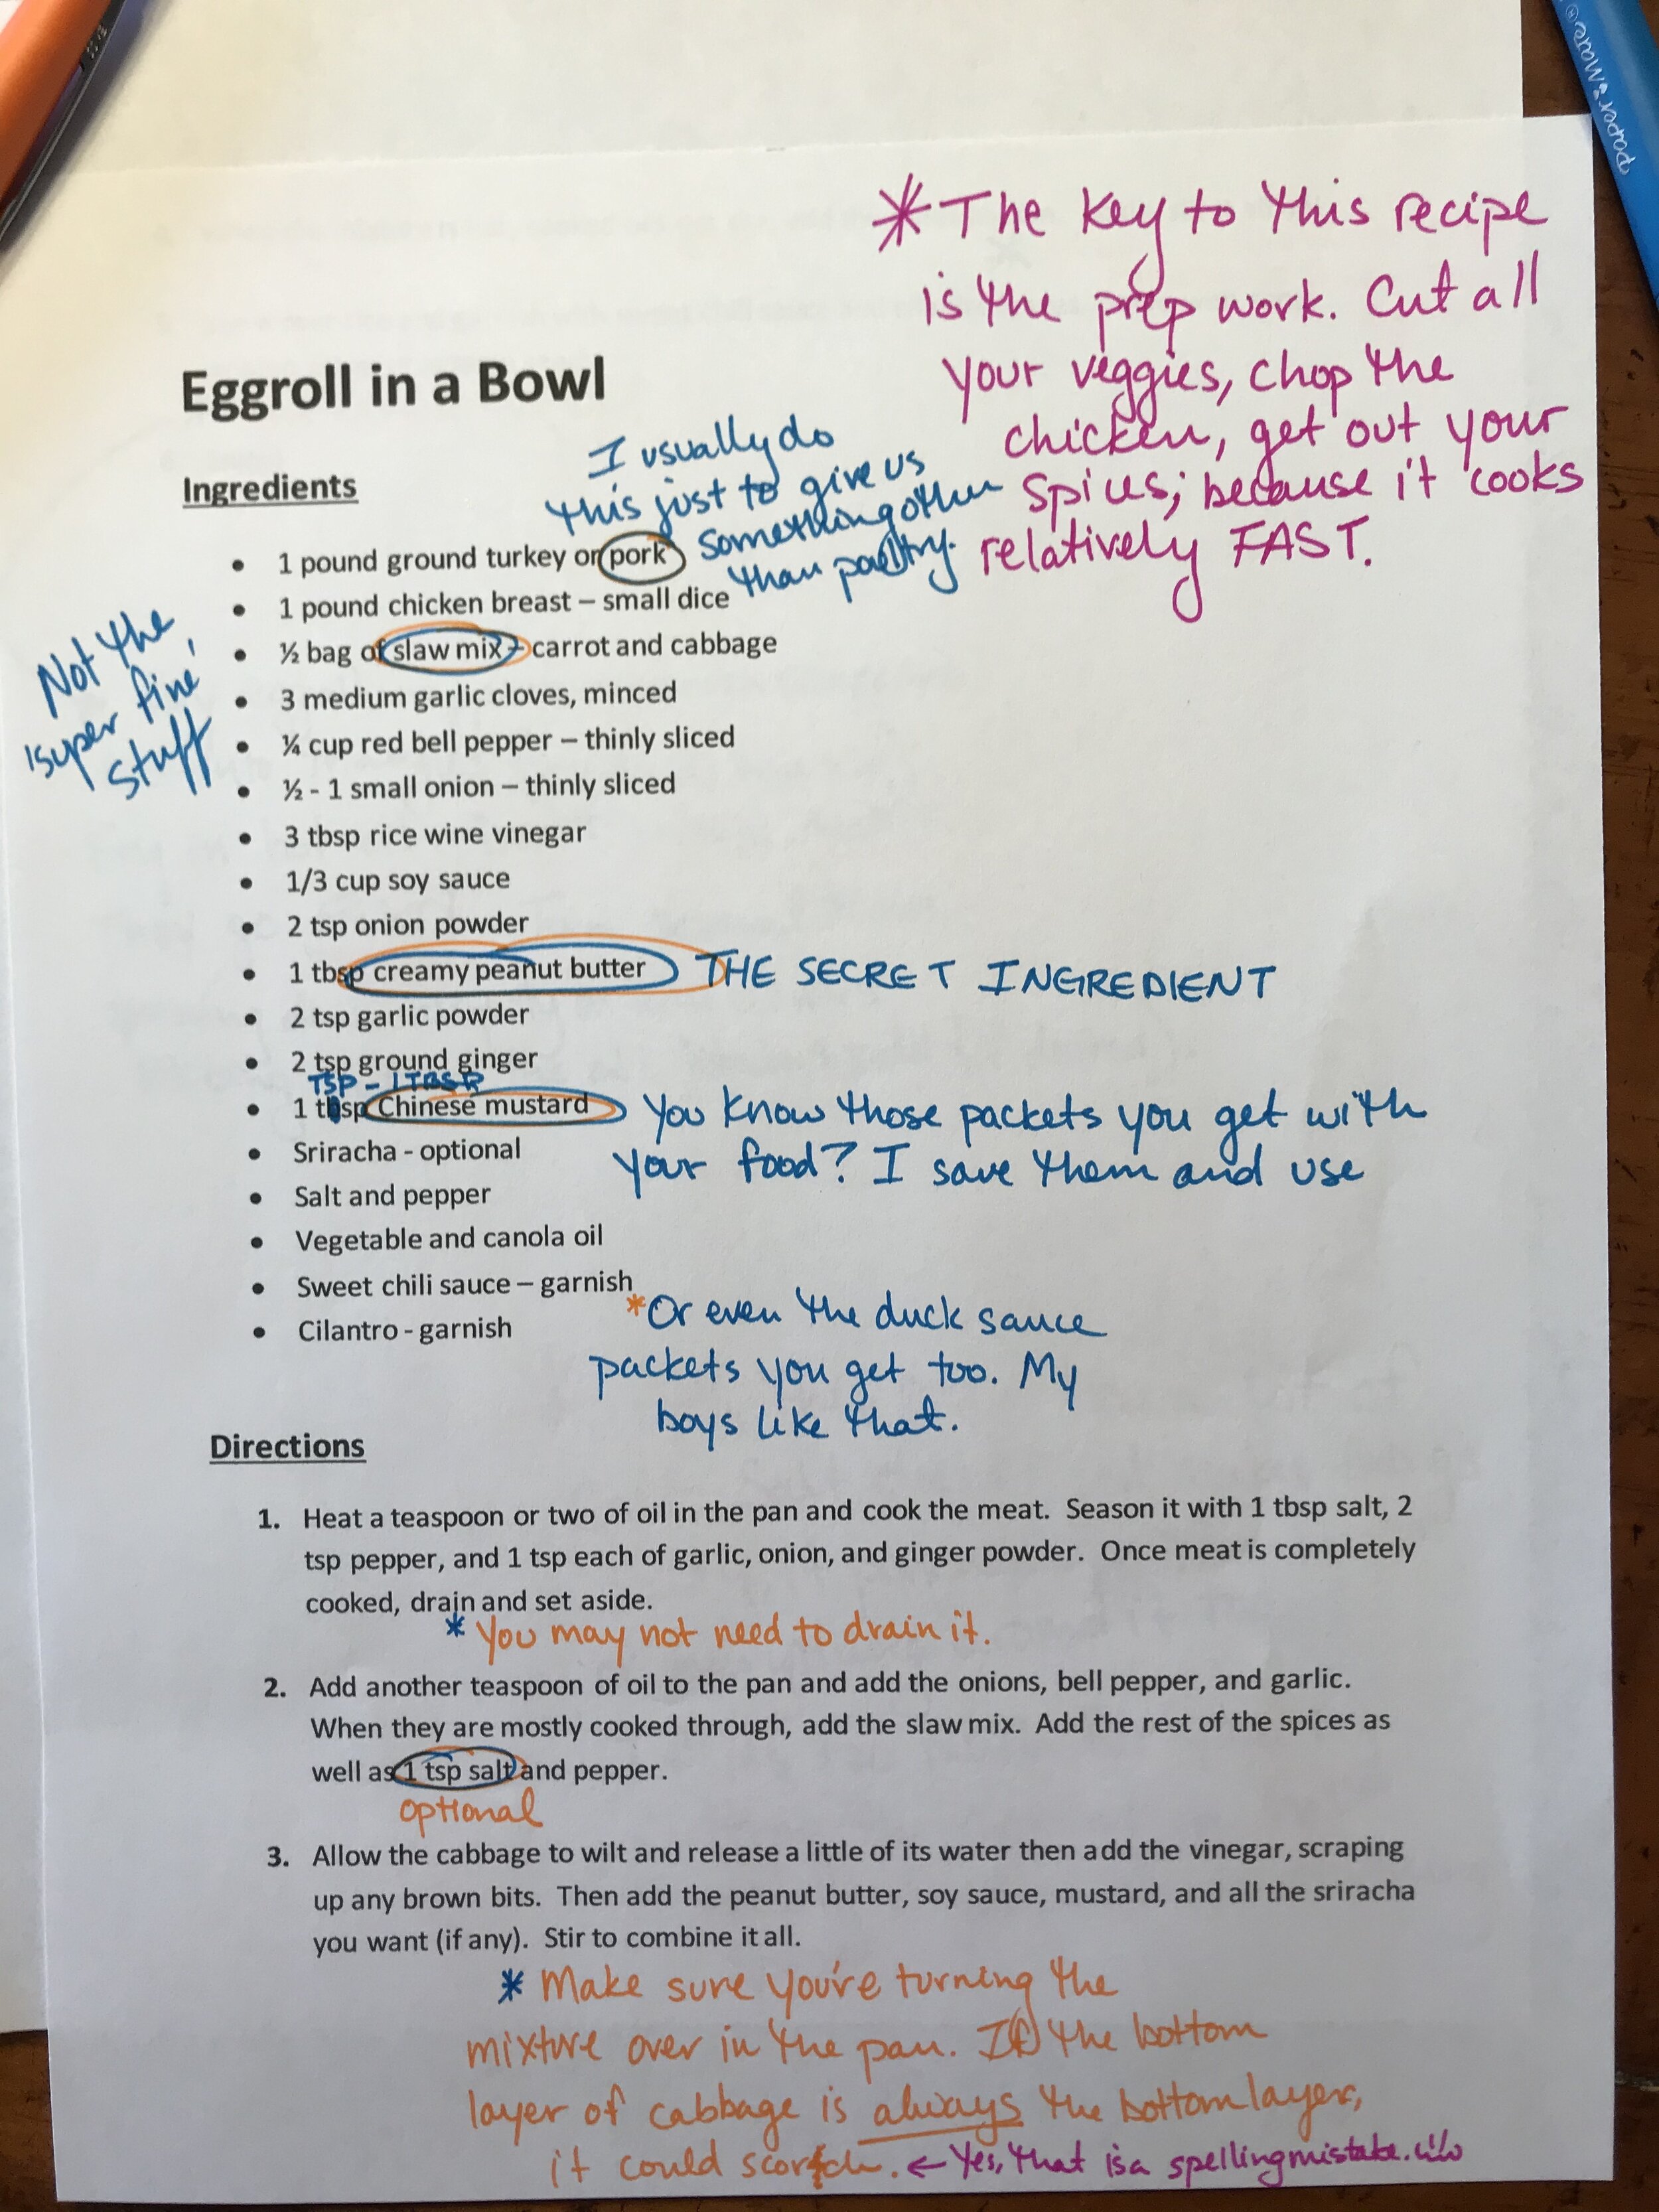 paper:mate®
* The Key to this recipe
is the prep work. Cut all
your veggies, chop the
chicken, get out your
spices; because it cooks
relatively FAST.
Eggroll in a Bowl
I usually do
this just to give us
something other
than poultry.
Ingredients
• 1 pound ground turkey or pork
• 1 pound chicken breast – small dice
• ½ bag of slaw mix – carrot and cabbage
Not the
super fine
stuff
• 3 medium garlic cloves, minced
• ¼ cup red bell pepper – thinly sliced
• ½ - 1 small onion – thinly sliced
• 3 tbsp rice wine vinegar
• 1/3 cup soy sauce
• 2 tsp onion powder
• 1 tbsp creamy peanut butter THE SECRET INGREDIENT
• 2 tsp garlic powder
• 2 tsp ground ginger
TSP - 1 TBSP
• 1 tbsp Chinese mustard You know those packets you get with
your food? I save them and use
• Sriracha - optional
• Salt and pepper
• Vegetable and canola oil
• Sweet chili sauce – garnish
*Or even the duck sauce
packets you get too. My
boys like that.
• Cilantro - garnish
Directions
1. Heat a teaspoon or two of oil in the pan and cook the meat. Season it with 1 tbsp salt, 2
tsp pepper, and 1 tsp each of garlic, onion, and ginger powder. Once meat is completely
cooked, drain and set aside.
* You may not need to drain it.
2. Add another teaspoon of oil to the pan and add the onions, bell pepper, and garlic.
When they are mostly cooked through, add the slaw mix. Add the rest of the spices as
well as 1 tsp salt and pepper.
optional
3. Allow the cabbage to wilt and release a little of its water then add the vinegar, scraping
up any brown bits. Then add the peanut butter, soy sauce, mustard, and all the sriracha
you want (if any). Stir to combine it all.
* Make sure you're turning the
mixture over in the pan. If the bottom
layer of cabbage is always the bottom layer,
it could scorch. ← Yes, that is a spelling mistake.